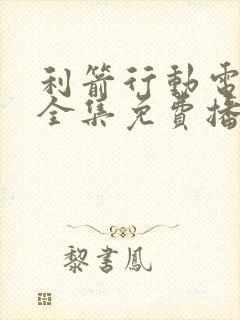 利箭行動電
全集免費播
黎書鳳